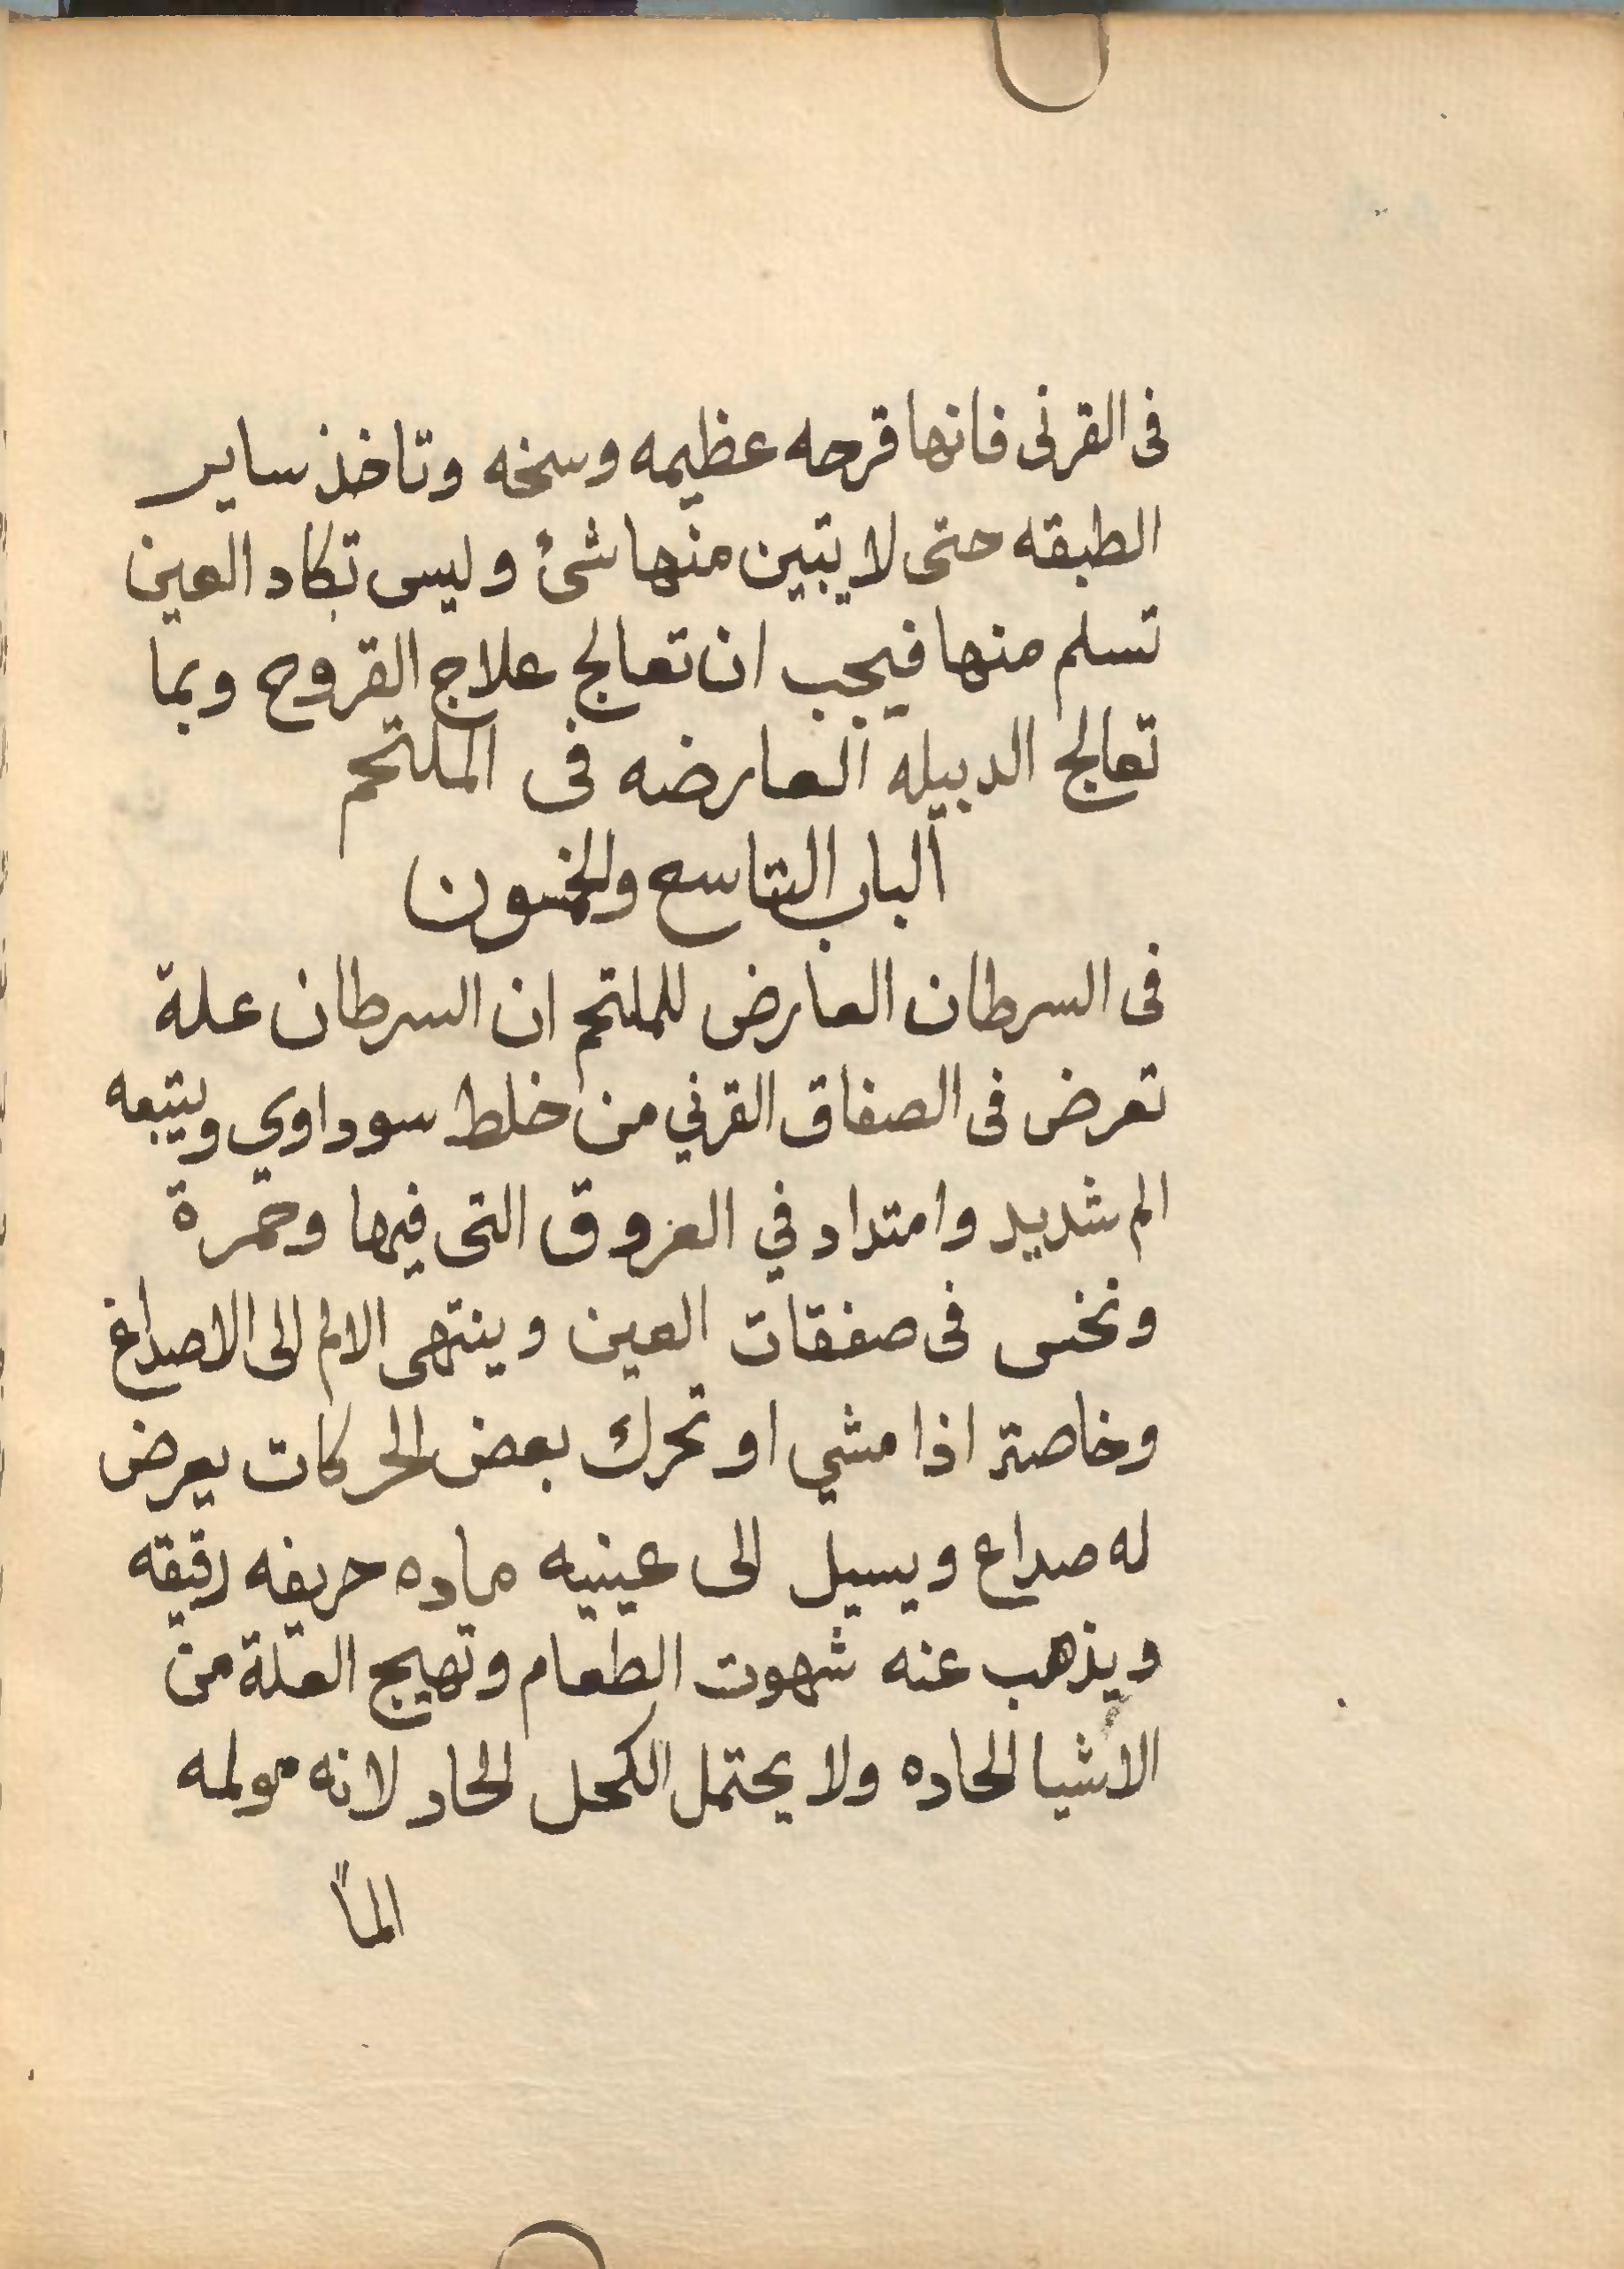 فى القرنى فانها قرحه عظيمه وسخه وتاخذ ساير
الطبقه حتى لا يتبين منها شئ وليس تكاد العين
تسلم منها فيجب ان تعالج علاج القروح وبما
تعالج الدبيله العارضه فى الملتحم
الباب التاسع والخمسون
فى السرطان العارض للملتحم ان السرطان علة
تعرض فى الصفاق القرني من خلط سوداوي ويتبعه
الم شديد وامتداد في العروق التى فيها وحمرة
ونخس فى صفقات العين وينتهى الالم الى الاصداغ
وخاصة اذا مشي او تحرك بعض الحركات يعرض
له صداع ويسيل الى عينيه ماده حريفه رقيقه
ويذهب عنه شهوت الطعام وتهيج العلة من
الاشيا الحاده ولا يحتمل الكحل الحاد لانه مولمه
الماً